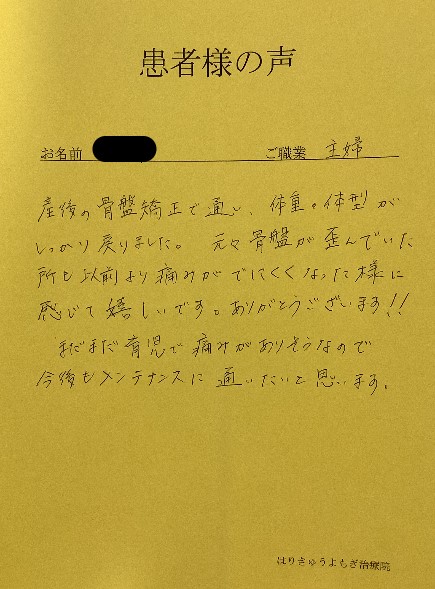 患者様の声
お名前 ご職業 主婦
産後の骨盤矯正で通い、体重や体型が
しっかり戻りました。元々骨盤が歪んでいた
所も以前より痛みがでにくくなった様に
感じて嬉しいです。ありがとうございます!!
まだまだ育児で痛みがありそうなので
今後もメンテナンスに通いたいと思います。
はりきゅうよもぎ治療院